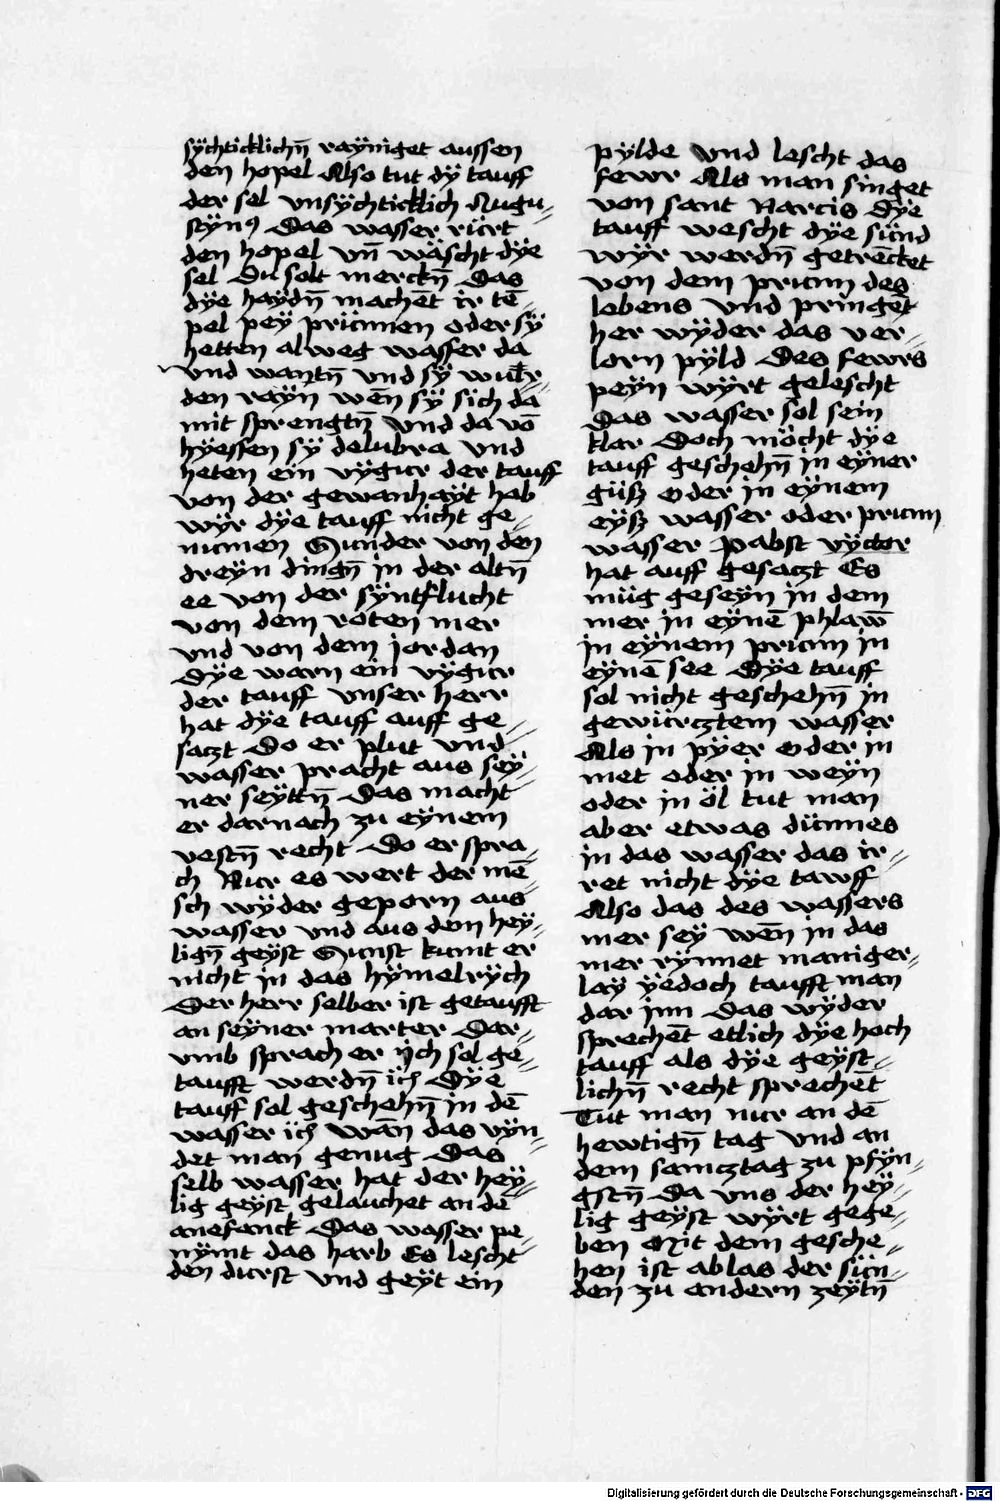 sÿchticklichn̄ raÿniget aussen
den hopel Also tut dÿ tauff
der sel vnsÿchticklich Augu⸗
stÿnꝰ Das wasser rürt
den hopel vn̄ wäscht dÿe
sel Du solt merckn̄ Das
dÿe haÿdn̄ machet̄ ir te̅⸗
pel peÿ prünnen oder sÿ
hetten alweg wasser da
vnd wantn̄ vnd sÿ wur⸗
den raÿn wen̄ sÿ sich da
mit sprengtn̄ vnd da vo̅
hÿessen sÿ delubra vnd
heten ein vÿgur der tauff
von der gewanhaÿt hab
wÿr dÿe tauff nicht ge⸗
numen Sunder von den
dreÿn dingn̄ in der altn̄
ee von der sÿntflucht
von dem roten mer
vnd von dem jordan
Dÿe warn ein vÿgur
der tauff vnser herr
hat dÿe tauff auff ge⸗
saczt Do er plut vnd⸗
wasser pracht aus seÿ⸗
ner seÿttn̄ Das macht
er darnach zu eÿnem
vestn̄ recht Do er spra⸗
ch Nur es wert der me̅⸗
sch wÿder geporn aus
wasser vnd aus dem heÿ⸗
lign̄ geÿst Sunst kumt er
nicht in das hÿmelrÿch
Der herr selber ist getaufft
an seÿner marter Dar⸗
vmb sprach er ÿch sol ge⸗
taufft werdn̄ ich Dÿe
tauff sol geschehn̄ in de̅
wasser ich wan̄ das vÿn⸗
det man genug Das
selb wasser hat der heÿ⸗
lig geÿst gelauchet an de̅
anefanck Das wasser pe⸗
nÿmt das harb Es lescht
den durst vnd geÿt ein
pÿlde vnd lescht das
fewr Als man singet
von sant Narcis Dÿe
tauff wescht dÿe sünd
wÿr werdn̄ getrec̄ket
von dem prunn des
lebens vnd pringet̄
her wÿder das ver⸗
lorn pÿld Des fewrs
peÿn wÿrt gelescht
Das wasser sol sein
klar Doch möcht dÿe
tauff geschehn̄ in eÿner
güsz oder in eÿnem
eÿsz wasser oder prunn
wasser Pabst vÿctor
hat auff gesaczt Es
müg geseÿn in dem
mer in eÿne̅ phlaw̄
in eÿnem prunn in
eÿne̅ see Dÿe tauff
sol nicht geschehn̄ in
gewürcztem wasser
Als in pÿer oder in
met oder in weÿn
oder in öl tut man
aber etwas dünnes
in das wasser das ir⸗
ret nicht dÿe tawff
Also das des wassers
mer seÿ wen̄ in das
mer rÿnnet maniger⸗
laÿ ÿedoch taufft man
dar jnn Das wÿder
sprechet̄ etlich dÿe hoch
tauff als dÿe geÿst⸗
lichn̄ recht sprechet̄
Tut man nur an de̅
hewtign̄ tag vnd an
dem samcztag zu pfÿn⸗
gstn̄ Da vns der heÿ⸗
lig geÿst wÿrt gege⸗
ben Mit dem gesche⸗
hen ist ablas der sün⸗
den zu andern zeÿtn̄
Digitalisierung gefördert durch die Deutsche Forschungsgemeinschaft - DFG